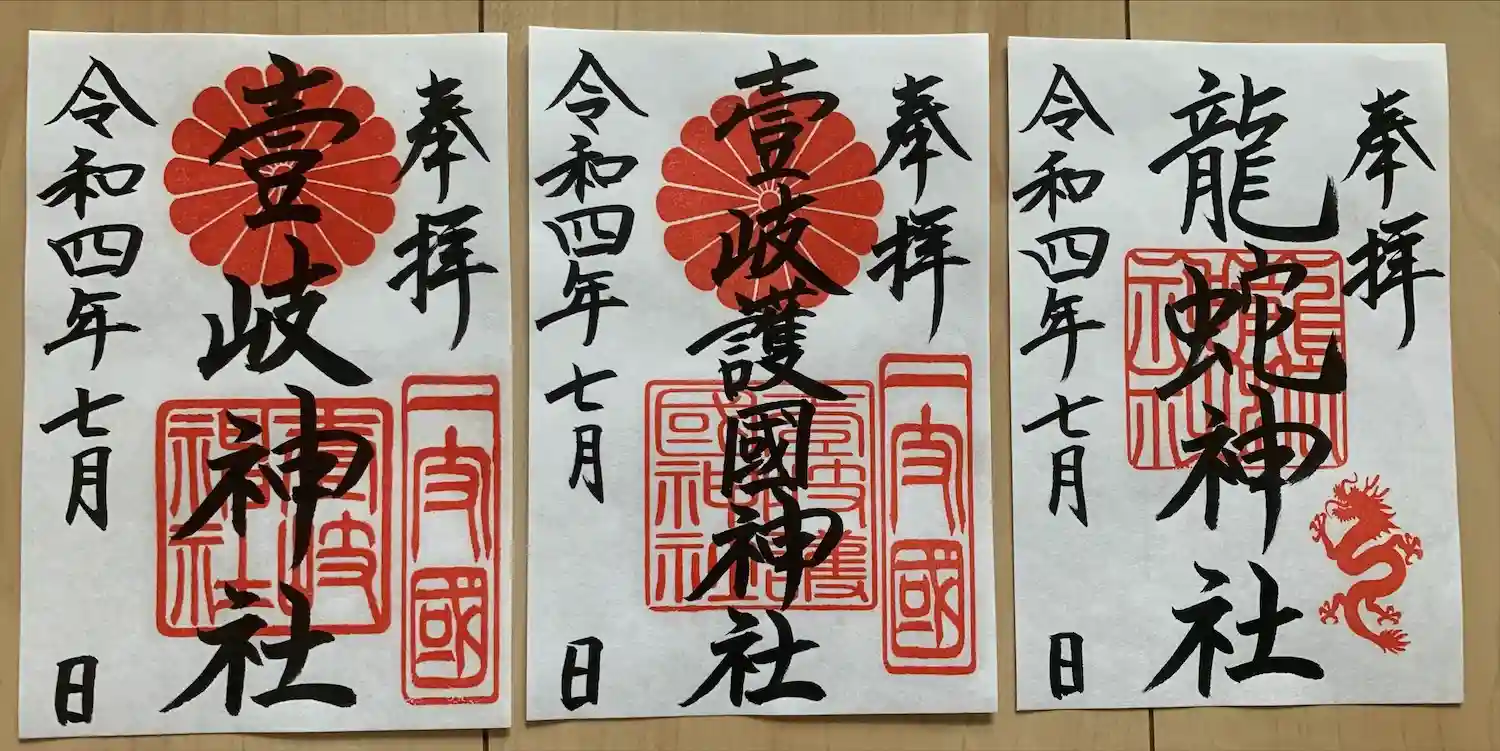 奉拝
一支國
壹岐神社
壹岐
神社
令和四年七月 日
奉拝
一支國
壹岐護國神社
壹岐護
國神社
令和四年七月 日
奉拝
龍蛇神社
龍蛇
神社
令和四年七月 日